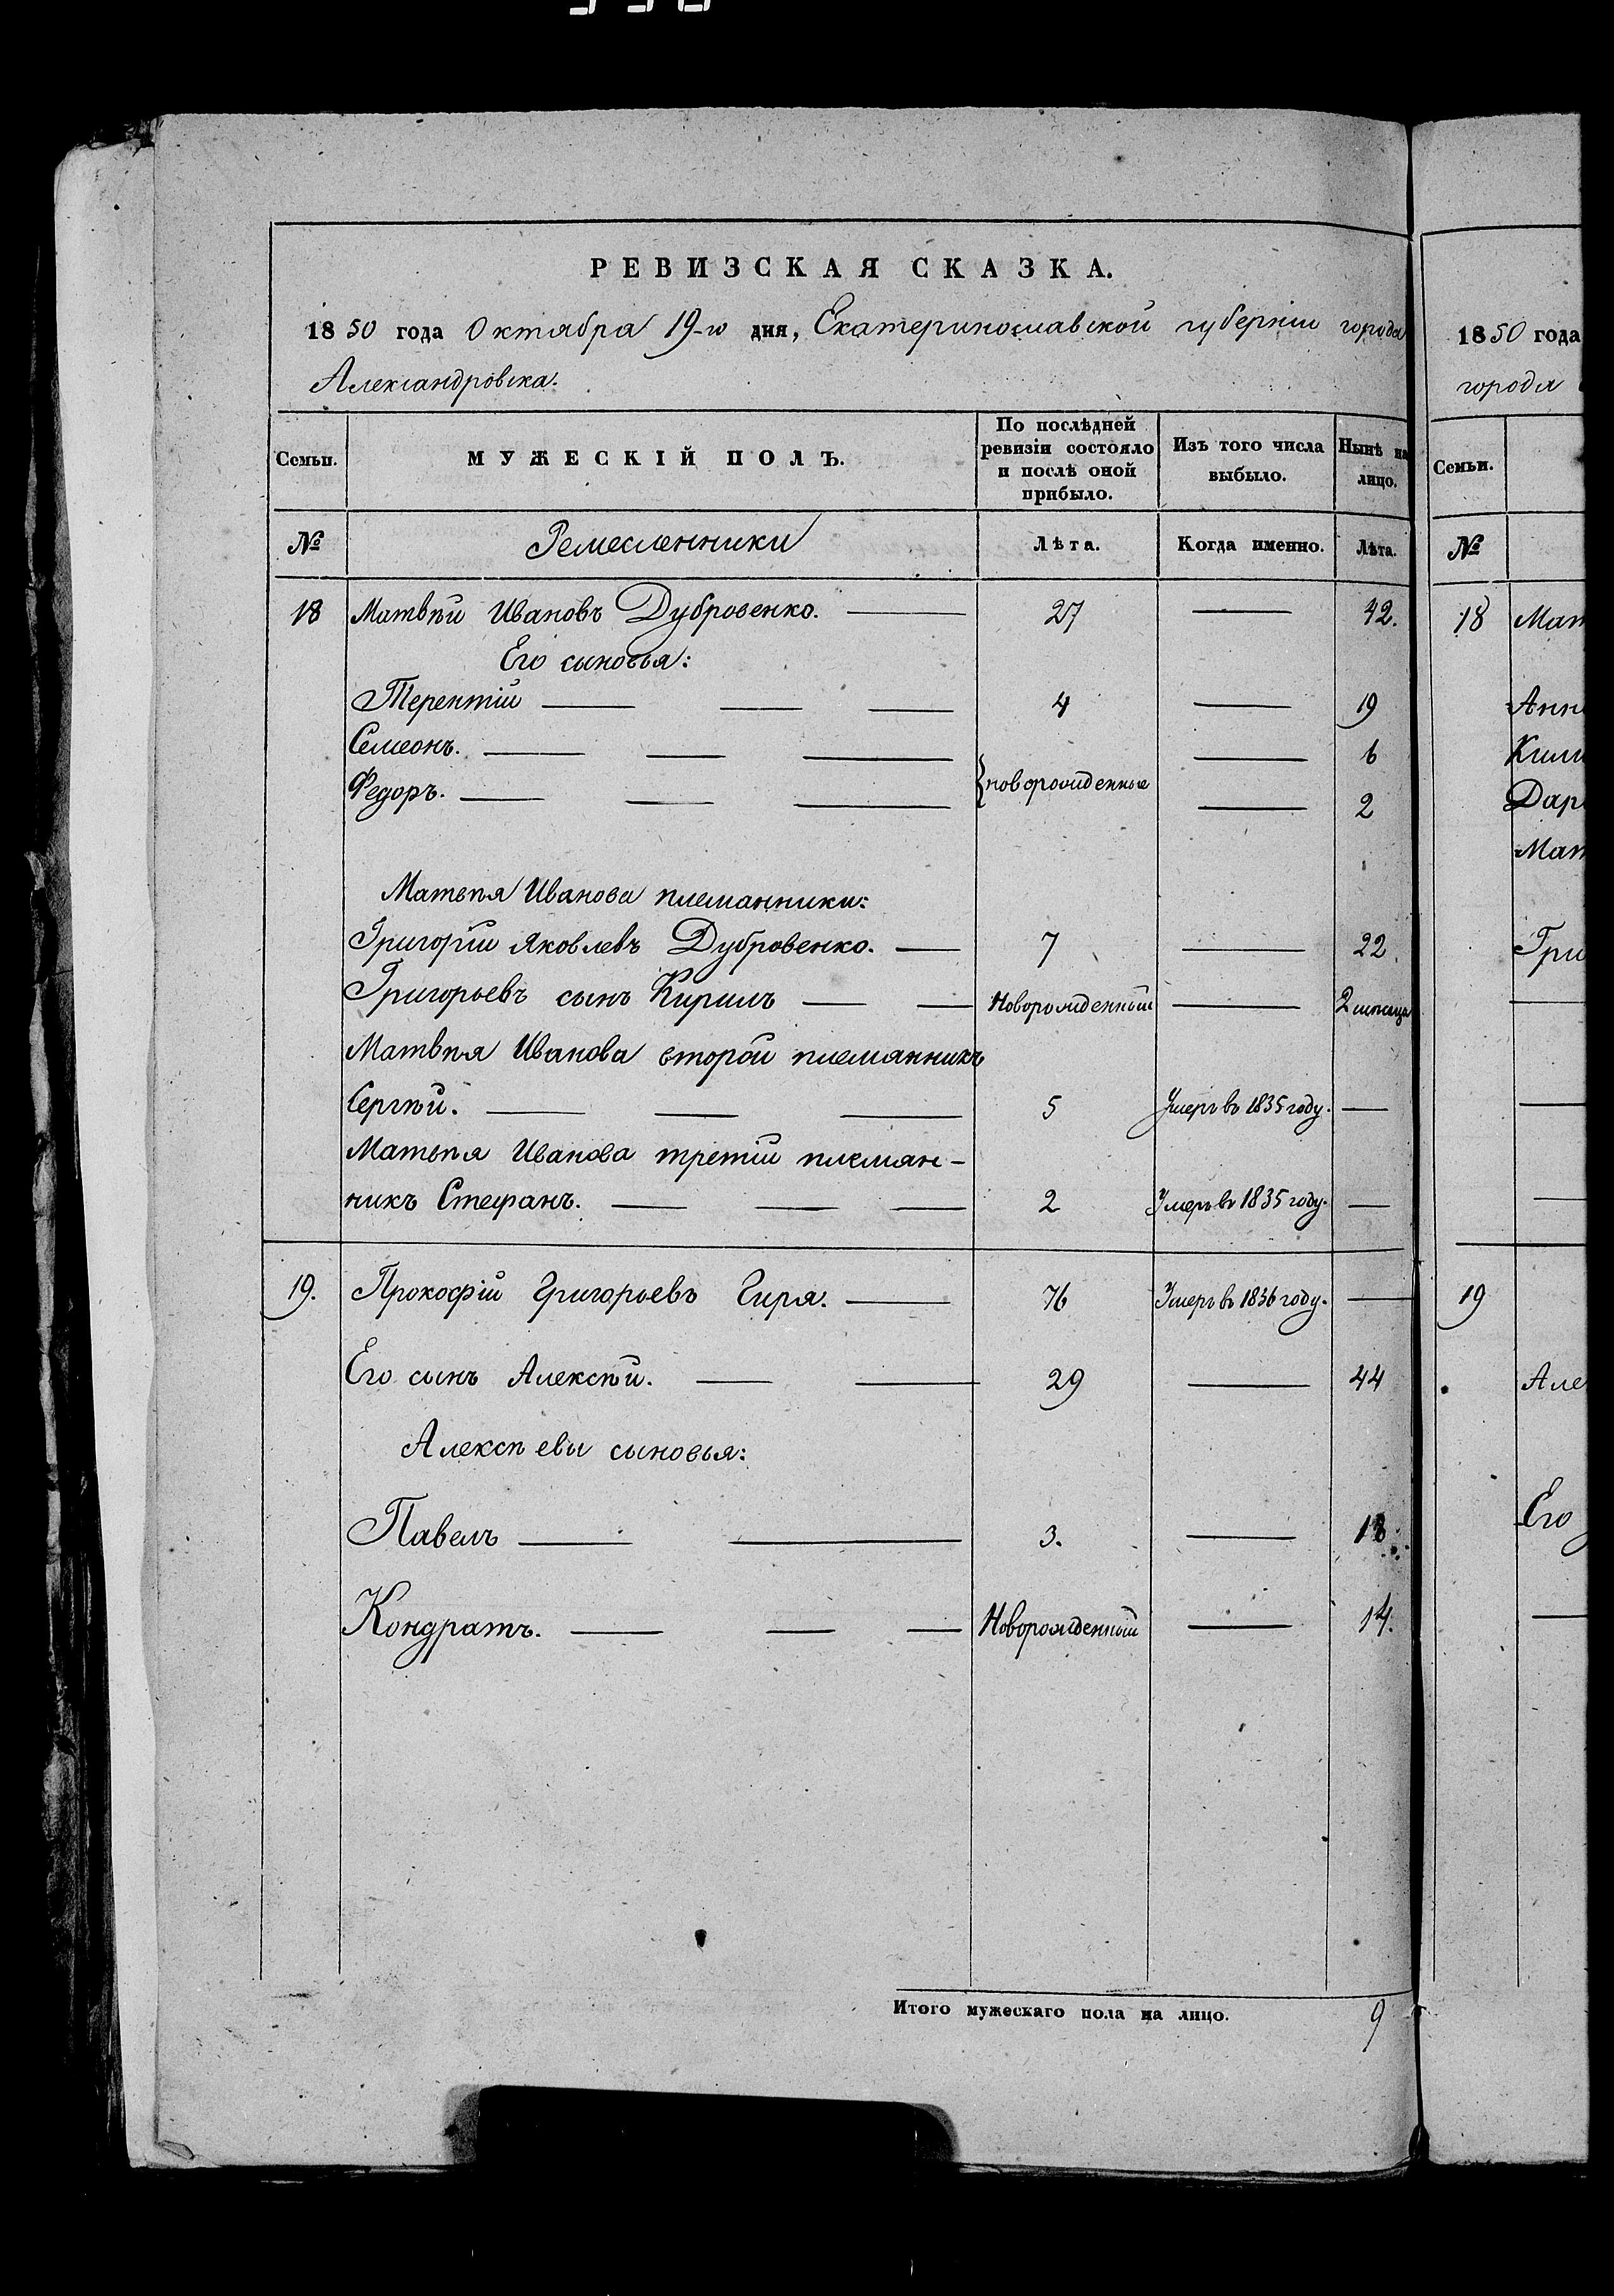 РЕВИЗСКАЯ СКАЗКА.
1850 года Октября 19-го дня, Екатеринославской губернии города
Александровска.
Семьи.
МУЖЕСКІЙ ПОЛЪ.
По послѣдней ревизіи состояло и послѣ оной прибыло.
Изъ того числа выбыло.
Нынѣ на лицо.
№
Ремесленники
Лѣта.
Когда именно.
Лѣта.
18 Матвѣй Ивановъ Дубровенко. — 27 — 42.
Его сыновья:
Терентій — — — 4 — 19
Семеонъ. — — — — 6
{новорожденные
Федоръ. — — — — 2
Матвѣя Иванова племанники:
Григорій Яковлевъ Дубровенко. — 7 — 22.
Григорьевъ сынъ Кирилъ — — Новорожденный — 2 мѣсяца
Матвѣя Иванова второй племянникъ
Сергѣй. — — — 5 Умеръ въ 1835 году. —
Матвѣя Иванова третій племян-
никъ Стефанъ. — — — 2 Умеръ въ 1835 году. —
19. Прокофій Григорьевъ Гиря. — 76 Умеръ въ 1836 году. —
Его сынъ Алексѣй. — — 29 — 44
Алексѣевы сыновья:
Павелъ — — 3. — 18
Кондратъ. — — — Новорожденный — 14.
Итого мужескаго пола на лицо. 9
1850 года
города
Семьи.
№
18 Мат
Анн
Кили
Дар
Мат
Гри
19
Але
Его